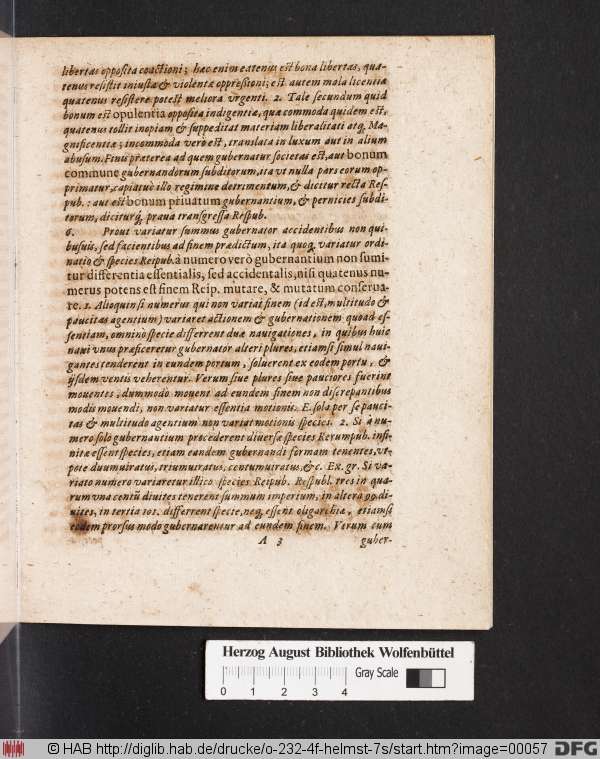 libertas opposita coactioni; hæc enim eatenus est bona libertas, qua-
tenus resistit iniustæ & violentæ oppressioni; est autem mala licentia
quatenus resistere potest meliora vrgenti. 2. Tale secundum quid
bonum est opulentia opposita indigentiæ, quæ commoda quidem est,
quatenus tollit inopiam & suppeditat materiam liberalitati atq; Ma-
gnificentiæ; incommoda verò est, translata in luxum aut in alium
abusum. Finis præterea ad quem gubernatur societas est, aut bonum
commune gubernandorum subditorum, ita vt nulla pars eorum op-
primatur, capiatue illo regimine detrimentum, & dicitur recta Res-
pub. : aut est bonum priuatum gubernantium, & pernicies subdi-
torum, diciturq; praua transgressa Respub.
6. Prout variatur summus gubernator accidentibus non qui-
busuis, sed facientibus ad finem prædictum, ita quoq; variatur ordi-
natio & species Reipub. à numero verò gubernantium non sumi-
tur differentia essentialis, sed accidentalis, nisi quatenus nu-
merus potens est finem Reip. mutare, & mutatum conserua-
re. 1. Alioquin si numerus qui non variat finem (id est, multitudo &
paucitas agentium) variaret actionem & gubernationem quoad es-
sentiam, omninò specie differrent duæ nauigationes, in quibus huic
naui vnus præficeretur gubernator alteri plures, etiamsi simul naui-
gantes tenderent in eundem portum, soluerent ex eodem portu, &
ijsdem ventis veherentur. Verum siue plures siue pauciores fuerint
mouentes, dummodo mouent ad eundem finem non discrepantibus
modis mouendi, non variatur essentia motionis. E. sola per se pauci-
tas & multitudo agentium non variat motionis species. 2. Si à nu-
mero solo gubernantium procederent diuersæ species Rerumpub. infi-
nitæ essent species, etiam eandem gubernandi formam tenentes, vt-
pote duumuiratus, triumuiratus, centumuiratus, &c. Ex. gr. Si va-
riato numero variaretur illico species Reipub. Respubl. tres in qua-
rum vna centũ diuites tenerent summum imperium, in altera 99. di-
uites, in tertia 101. differrent specie, neq; essent oligarchia, etiamsi
eodem prorsus modo gubernarentur ad eundem finem. Verum cum
A 3 guber-
Herzog August Bibliothek Wolfenbüttel
Gray Scale
0 1 2 3 4
© HAB http://diglib.hab.de/drucke/o-232-4f-helmst-7s/start.htm?image=00057 DFG